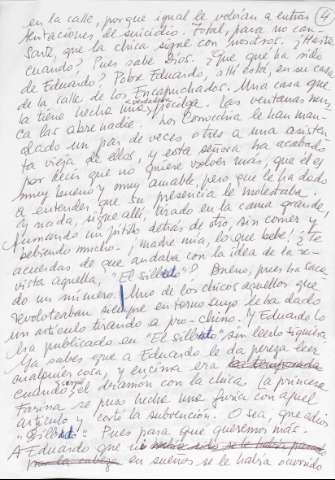 en la calle, porque igual le volvían a entrar
tentaciones de suicidio. Total, para no can-
sarte, que la chica sigue con nosotros. ¿Hasta
cuando? Pues sabe Dios. ¿Que que ha sido
de Eduardo? Pobre Eduardo, allí está, en su casa
de la calle de los Encapuchados. Una casa que
la tiene hecha una verdadera pocilga. Las ventanas nun-
ca las abre nadie. Los Convichia le han man-
dado un par de veces o tres a una asisten-
ta vieja de ellos, y esta señora ha acabado
por decir que no quiere volver mas, que él es
muy bueno y muy amable, pero que le ha dado
a entender que su presencia le molestaba.
Y nada, sigue allí, tirado en la cama grande
fumando un pitillo detrás de otro, sin comer y
bebiendo mucho. ¡madre mía, lo que bebe! ¿Te
acuerdas de que andaba con la idea de la re-
vista aquella, "El silbato"? Bueno, pues ha saca-
do un número. Uno de los chicos aquellos que
revoloteaban siempre en torno suyo le ha dado
un artículo tirando a pro-chino. Y Eduardo lo
ha publicado en "El silbato" sin leerlo siquiera
Ya sabes que a Eduardo le da pereza leer
cualquier cosa, y encima era la temporada
cuando surgió el dramón con la chica. La princesa
furiosa se puso hecha una furia con aquel
artículo y cortó la subvención. O sea, que adiós
"Silbato". Pues para que queremos más.
A Eduardo que
en sueños se le había ocurrido